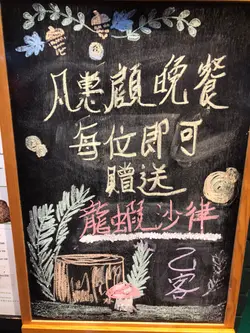 凡惠顧晚餐
每位即可
贈送
龍蝦沙律
乙客